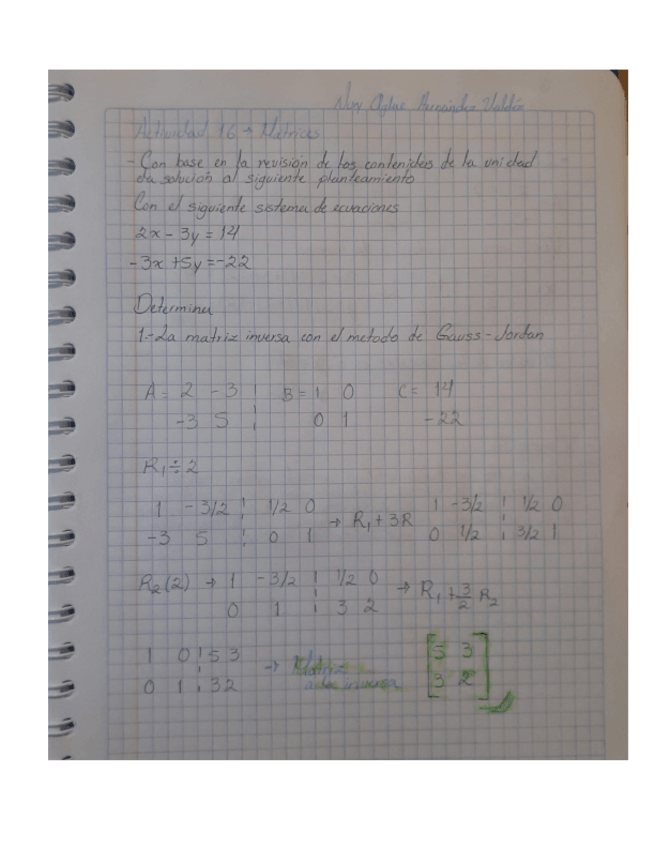 Hernández Valdéz
Actividad 16 → Matrices
- Con base en la revisión de los contenidos de la unidad
da solución al siguiente planteamiento
Con el siguiente sistema de ecuaciones
2x - 3y = 14
-3x + 5y = -22
Determina
1.- La matriz inversa con el metodo de Gauss-Jordan
A = 2 -3 ¦ B = 1 0 C = 14
-3 5 ¦ 0 1 -22
R₁ ÷ 2
1 -3/2 ¦ 1/2 0 → R₁ + 3R 1 -3/2 ¦ 1/2 0
-3 5 ¦ 0 1 0 1/2 ¦ 3/2 1
R₂(2) → 1 -3/2 ¦ 1/2 0 → R₁ + 3/2 R₂
0 1 ¦ 3 2
1 0 ¦ 5 3 → Matriz [5 3
0 1 ¦ 3 2 inversa 3 2]